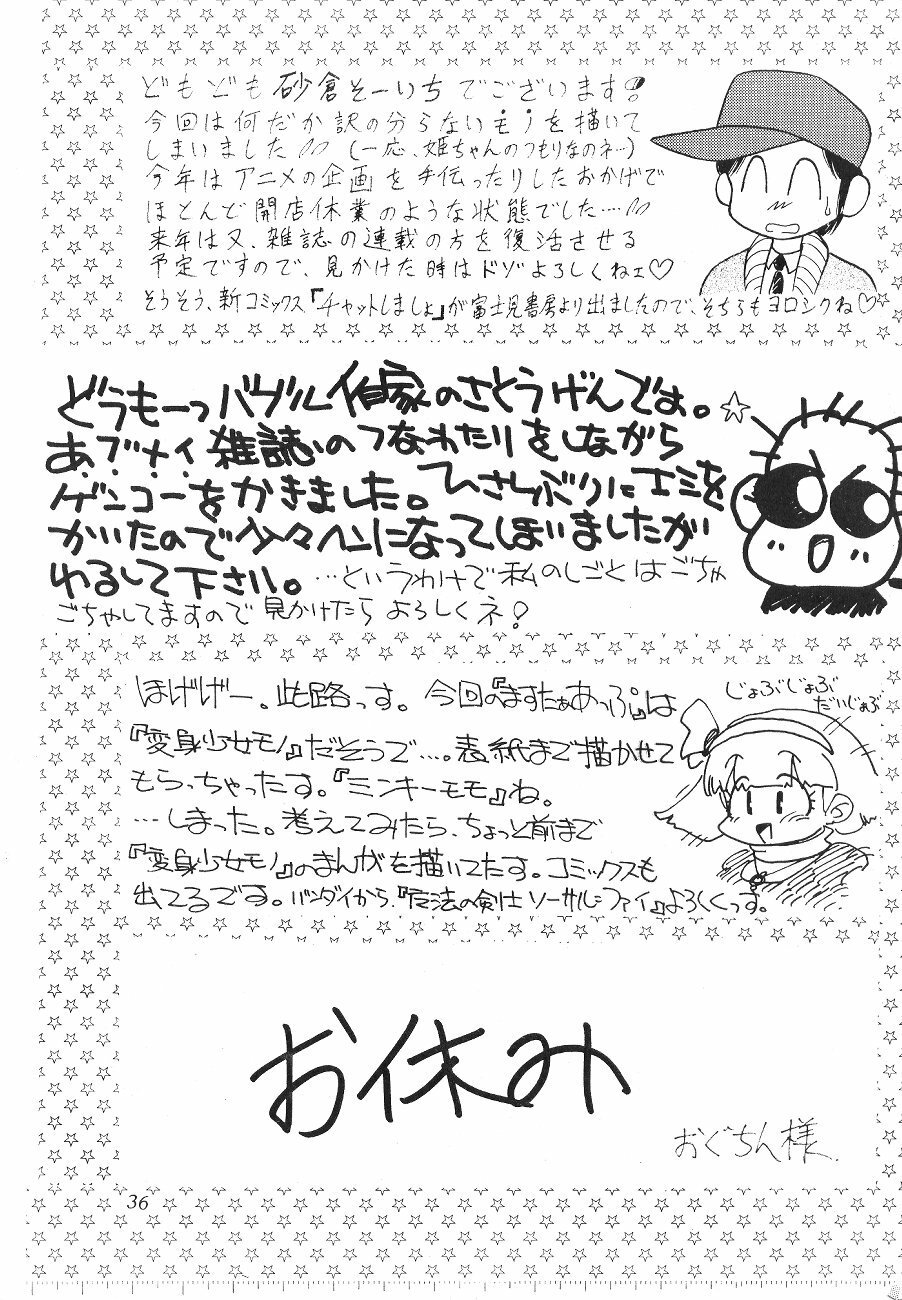 どもども 砂倉そーいち でございます!
今回は何だか訳の分らないモノを描いて
しまいました (一応、姫ちゃんのつもりなのネ…)
今年は アニメの企画を手伝ったりしたおかげで
ほとんど 開店休業のような状態でした…
来年は又、雑誌の連載の方を復活させる
予定ですので、見かけた時はドゾよろしくねェ♡
そうそう、新コミックス『チャットしましょ』が富士見書房より出ましたので、そちらもヨロシクね♡
どうもーっバブル作家のさとうげんです。☆
あ・ブ・ナ・イ 雑誌のつなわたりをしながら
ゲンコーをかきました。ひさしぶりにエミを
かいたので少々ヘンになってしまいましたが
わるして下さい。…というわけで私のしごとはごちゃ
ごちゃしてますので見かけたらよろしくネ!
ほげげー。此路っす。今回の『ますたぁあっぷ』は
『変身少女モノ』だそうで…。表紙まで描かせて
もらっちゃったす。『ミンキーモモ』ね。
…しまった。考えてみたら、ちょっと前まで
『変身少女モノ』のまんがを描いてたす。コミックスも
出てるです。バンダイから『魔法の剣士ソーサル=ファイ』よろくっす。
じょぶじょぶ
だいじょぶ
お休み
おぐちん様
36